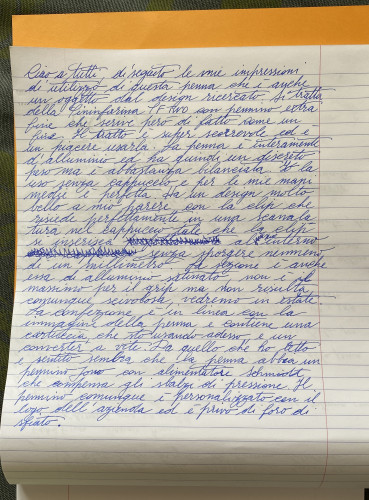 Ciao a tutti, di seguito le mie impressioni
di utilizzo di questa penna che è anche
un oggetto dal design ricercato. Si tratta
della Pininfarina con pennino extra
fine che scrive però di fatto come un
fine. Il tratto è super scorrevole ed è
un piacere usarla. La penna è interamente
d'alluminio ed ha quindi un discreto
peso ma è abbastanza bilanciata. Io la
uso senza cappuccio e per le mie mani
medie è perfetta. Ha un design molto
bello a mio parere con la clip che
risiede perfettamente in una scanala
tura nel cappuccio tale che la clip
si inserisca all'interno
senza sporgere nemmeno
di un millimetro. La sezione è anche
essa di alluminio satinato non è il
massimo per il grip ma non risulta
comunque scivolosa, vedremo in estate
La confezione è in linea con la
immagine della penna e contiene una
cartuccia che sto usando adesso e un
converter a vite. Da quello che ho letto
e sentito sembra che la penna abbia un
pennino con alimentatore Schmidt,
che compensa gli sbalzi di pressione. Il
pennino comunque è personalizzato con il
logo dell'azienda ed è privo di foro di
sfiato.